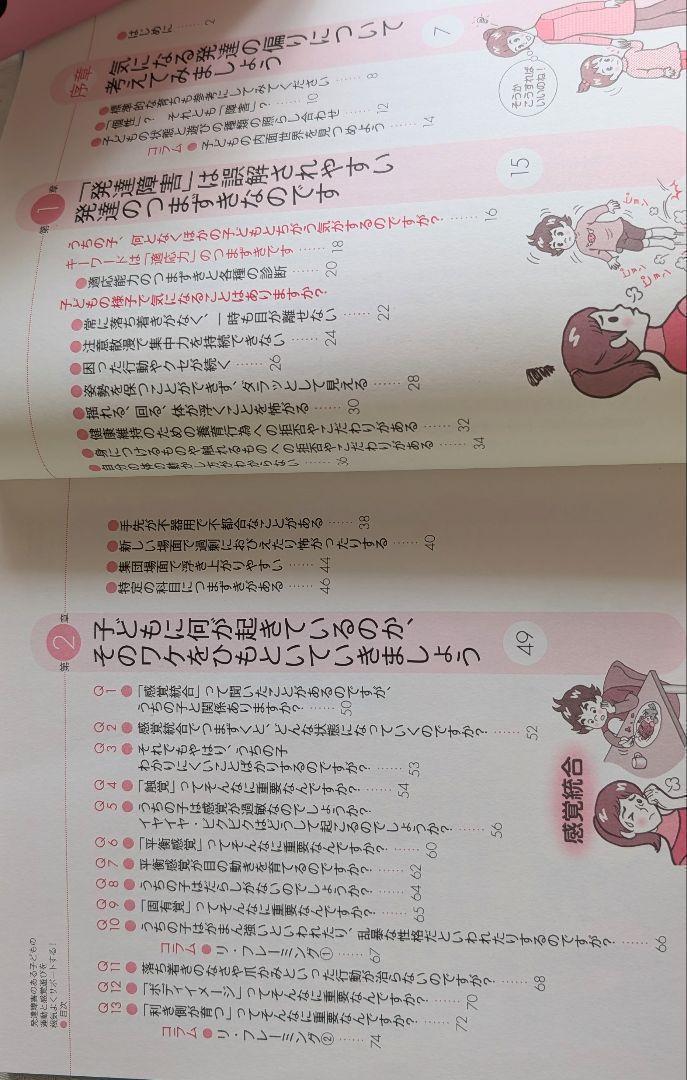 発達障害のある子どもの
運動と感覚遊びを
根気よくサポートする!
●目次
●はじめに …… 2
序章
気になる発達の偏りについて
考えてみましょう
7
●標準的な育ちも参考にしてみてください …… 8
●「個性」? それとも「障害」? …… 10
●子どもの状態と遊びの種類の照らし合わせ …… 12
コラム ● 子どもの内面世界を見つめよう …… 14
そうか
こうすれば
いいのね!
第1章
「発達障害」は誤解されやすい
発達のつまずきなのです
15
うちの子、何となくほかの子どもとちがう気がするのですが? …… 16
キーワードは「適応力」のつまずきです …… 18
●適応能力のつまずきと各種の診断 …… 20
子どもの様子で気になることはありますか?
●常に落ち着きがなく、一時も目が離せない …… 22
●注意散漫で集中力を持続できない …… 24
●困った行動やクセが続く …… 26
●姿勢を保つことができず、ダラッとして見える …… 28
●揺れる、回る、体が浮くことを怖がる …… 30
●健康維持のための養育行為への拒否やこだわりがある …… 32
●身につけるものや触れるものへの拒否やこだわりがある …… 34
●自分の体の動かし方がわからない …… 36
ピョン
ピョン
ピョン
●手先が不器用で不都合なことがある …… 38
●新しい場面で過剰におびえたり怖がったりする …… 40
●集団場面で浮き上がりやすい …… 44
●特定の科目につまずきがある …… 46
第2章
子どもに何が起きているのか、
そのワケをひもといていきましょう
49
Q1 ●「感覚統合」って聞いたことがあるのですが、
うちの子と関係ありますか? …… 50
Q2 ●感覚統合でつまずくと、どんな状態になっていくのですか? …… 52
Q3 ●それでもやはり、うちの子
わかりにくいことばかりするのですが? …… 53
Q4 ●「触覚」ってそんなに重要なんですか? …… 54
Q5 ●うちの子は感覚が過敏なのでしょうか?
イヤイヤ・ビクビクはどうして起こるのでしょうか? …… 56
Q6 ●「平衡感覚」ってそんなに重要なんですか? …… 60
Q7 ●平衡感覚が目の動きを育てるのですか? …… 62
Q8 ●うちの子はだらしがないのでしょうか? …… 64
Q9 ●「固有覚」ってそんなに重要なんですか? …… 65
Q10 ●うちの子はがまん強いといわれたり、乱暴な性格だといわれたりするのですが? …… 66
コラム ● リ・フレーミング① …… 67
Q11 ●落ち着きのなさや爪かみといった行動が治らないのですが? …… 68
Q12 ●「ボディイメージ」ってそんなに重要なんですか? …… 70
Q13 ●「利き側が育つ」ってそんなに重要なんですか? …… 72
コラム ● リ・フレーミング② …… 74
感覚統合